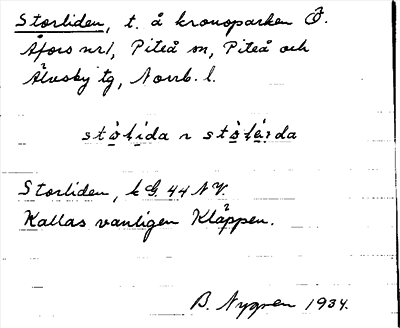 Storliden, t. å kronoparken Ö.
Åfors nr 1, Piteå sn, Piteå och
Älvsby tg, Norrb. l.
Storliden, k G. 44 N V.
Kallas vanligen Kläppen.
B. Nygren 1934.